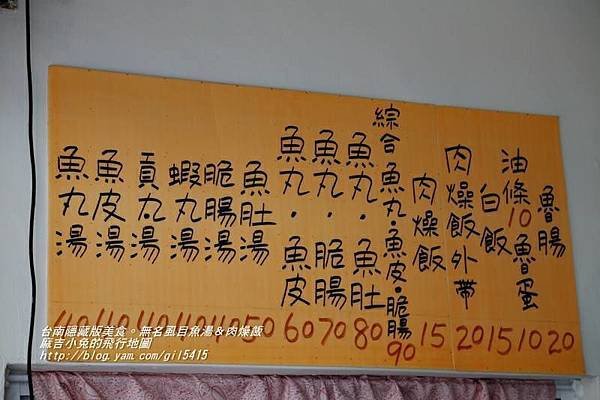 魚丸湯 40
魚皮湯 40
貢丸湯 40
蝦丸湯 40
脆腸湯 40
魚肚湯 50
魚丸．魚皮 60
魚丸．脆腸 70
魚丸．魚肚 80
綜合魚丸．魚皮．脆腸 90
肉燥飯 15
肉燥飯外帶 20
白飯 15
油條 10
魯蛋 10
魯腸 20
台南隱藏版美食。無名虱目魚湯&肉燥飯
麻吉小兔的飛行地圖
http://blog.yam.com/gil5415